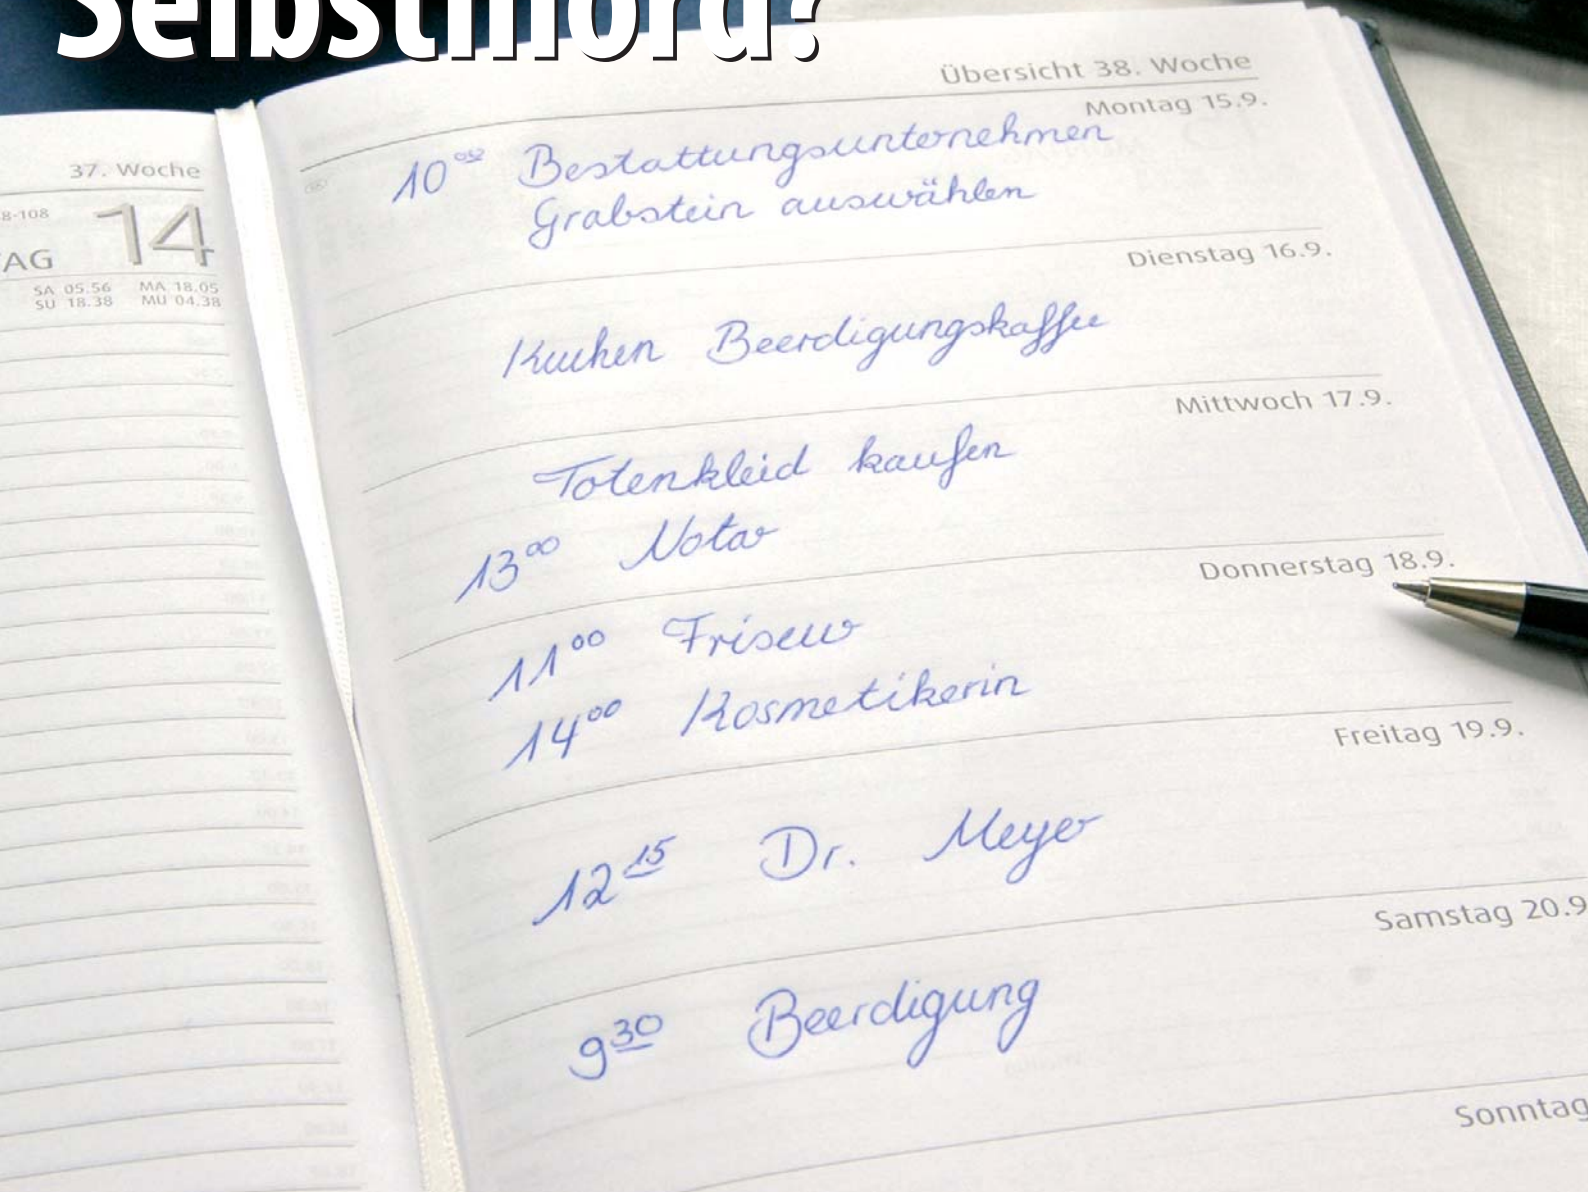 Selbstmord?
37. Woche
8-108
14
TAG
SA 05.56 MA 18.05
SU 18.38 MU 04.38
Übersicht 38. Woche
Montag 15.9.
10⁰⁰ Bestattungsunternehmen
Grabstein auswählen
Dienstag 16.9.
Kuchen Beerdigungskaffee
Mittwoch 17.9.
Totenkleid kaufen
13⁰⁰ Notar
Donnerstag 18.9.
11⁰⁰ Friseur
14⁰⁰ Kosmetikerin
Freitag 19.9.
12¹⁵ Dr. Meyer
Samstag 20.9
9³⁰ Beerdigung
Sonntag